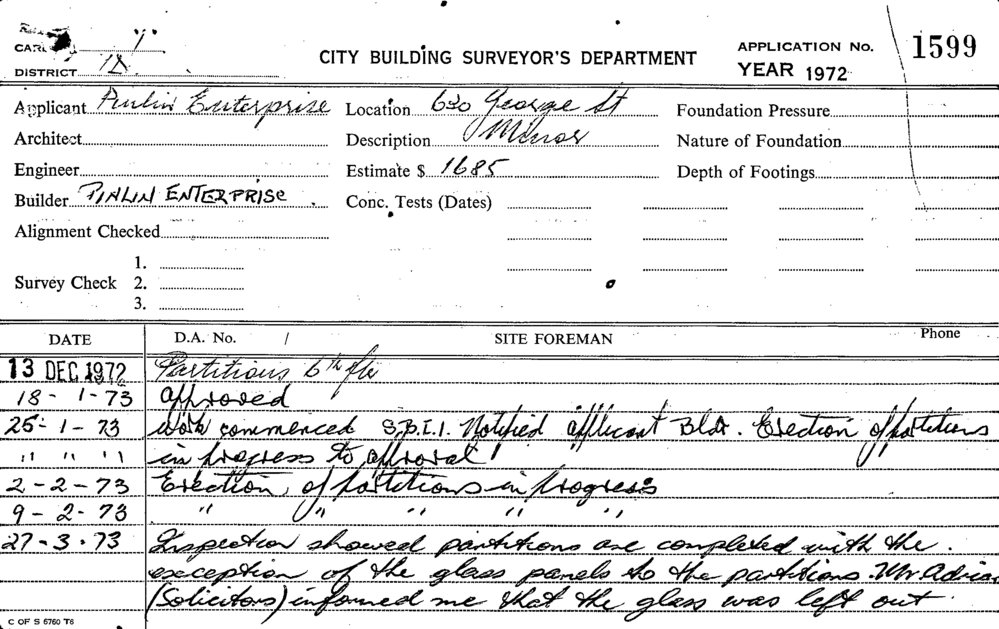 CARD
DISTRICT
CITY BUILDING SURVEYOR'S DEPARTMENT
APPLICATION No. 1599
YEAR 1972
Applicant Pinlin Enterprise Location 630 George St Foundation Pressure
Architect Description Minor Nature of Foundation
Engineer Estimate $ 1685 Depth of Footings
Builder PINLIN ENTERPRISE Conc. Tests (Dates)
Alignment Checked
1.
Survey Check 2.
3.
DATE D.A. No. / SITE FOREMAN Phone
13 DEC 1972 Partitions 6th flr
18 - 1 - 73 approved
25 - 1 - 73 work commenced S.B.I.1. Notified applicant Bldr. Erection of partitions
" " " in progress to approval
2 - 2 - 73 Erection of partitions in progress
9 - 2 - 73 " " " " "
27 - 3 - 73 Inspection showed partitions are completed with the
exception of the glass panels to the partitions. Mr Adrian
(Solicitors) informed me that the glass was left out.
C OF S 6760 T6